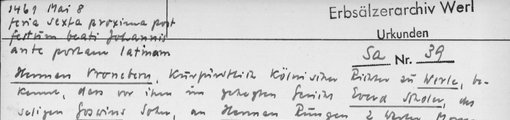 1461 Mai 8
feria sexta proxima post
festum beati Johannis
ante portam latinam
Erbsälzerarchiv Werl
Urkunden
Sa Nr. 39
Herman Vronetern, Kurfürstlich Kölnischer Richter zu Werle, be-
kennt, dass vor ihm im gehegten Gericht Everd Scholer, des
seligen Goswins Sohn, an Herman Rungen 2 Werler